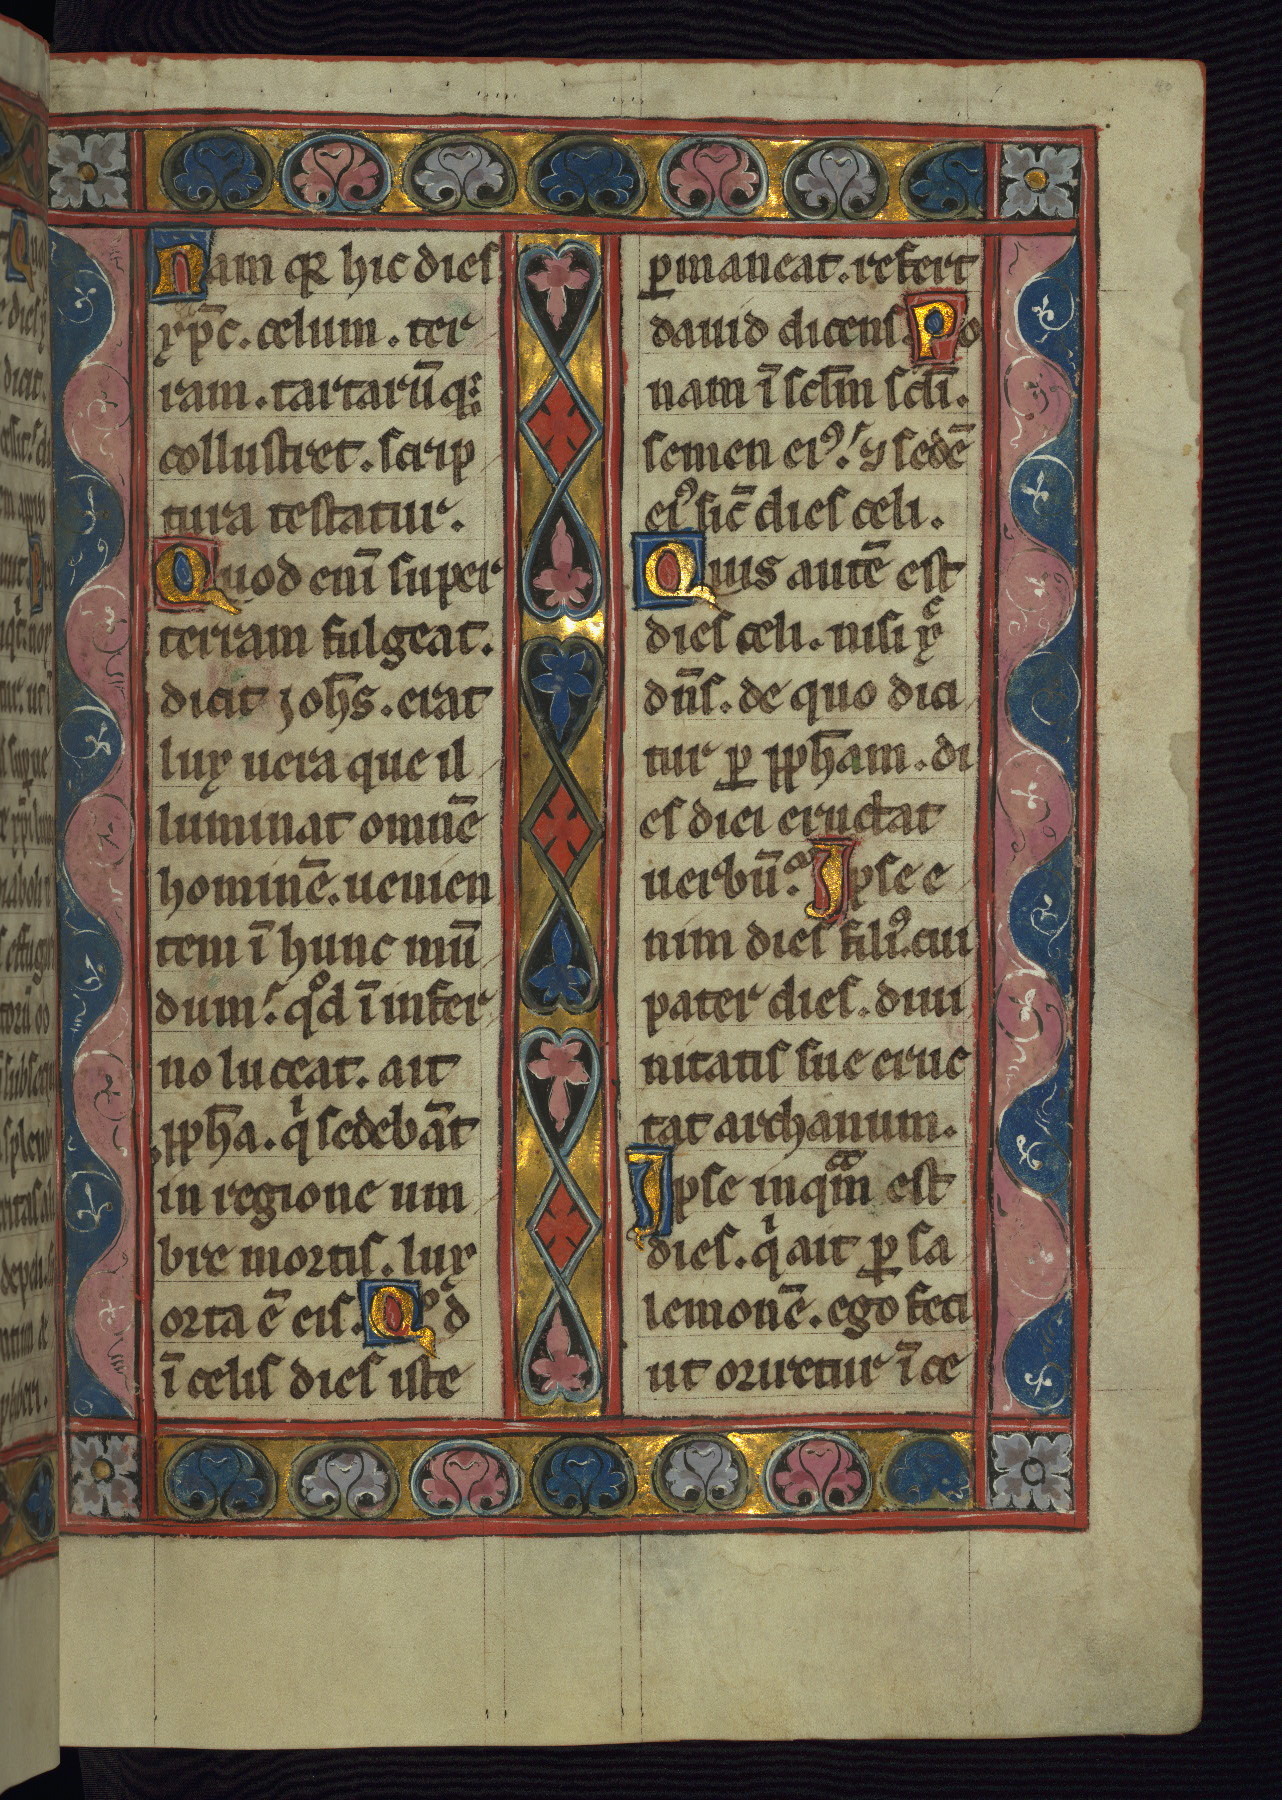 Nam qꝛ hic dies
xp̄c. celum. ter
ram. tartarūq;
collustret. scrip
tura testatur.
Quod enī super
terram fulgeat.
dicit ioh̄s. erat
lux uera que il
luminat omnē
hominē. uenien
tem ī hunc mū
dum. qͦd ī infer
no luceat. ait
pph̄a. qͥ sedebāt
in regione um
bre mortis. lux
orta ē eis. Qͦd
ī celis dies iste
ꝑmaneat. refert
dauid dicens. Po
nam ī sc̄lm sc̄li.
semen eiꝰ. ⁊ sedē
eiꝰ sic̄ dies celi.
Quis autē est
dies celi. nisi xᷓc
dn̄s. de quo dici
tur ꝑ pph̄am. di
es diei eructat
uerbū. Ipse e
nim dies filiꝰ. cui
pater dies. diui
nitatis sue eruc
tat archanum.
Ipse inqᷓm est
dies. qͥ ait ꝑ sa
lemonē. ego feci
ut oriretur ī ce